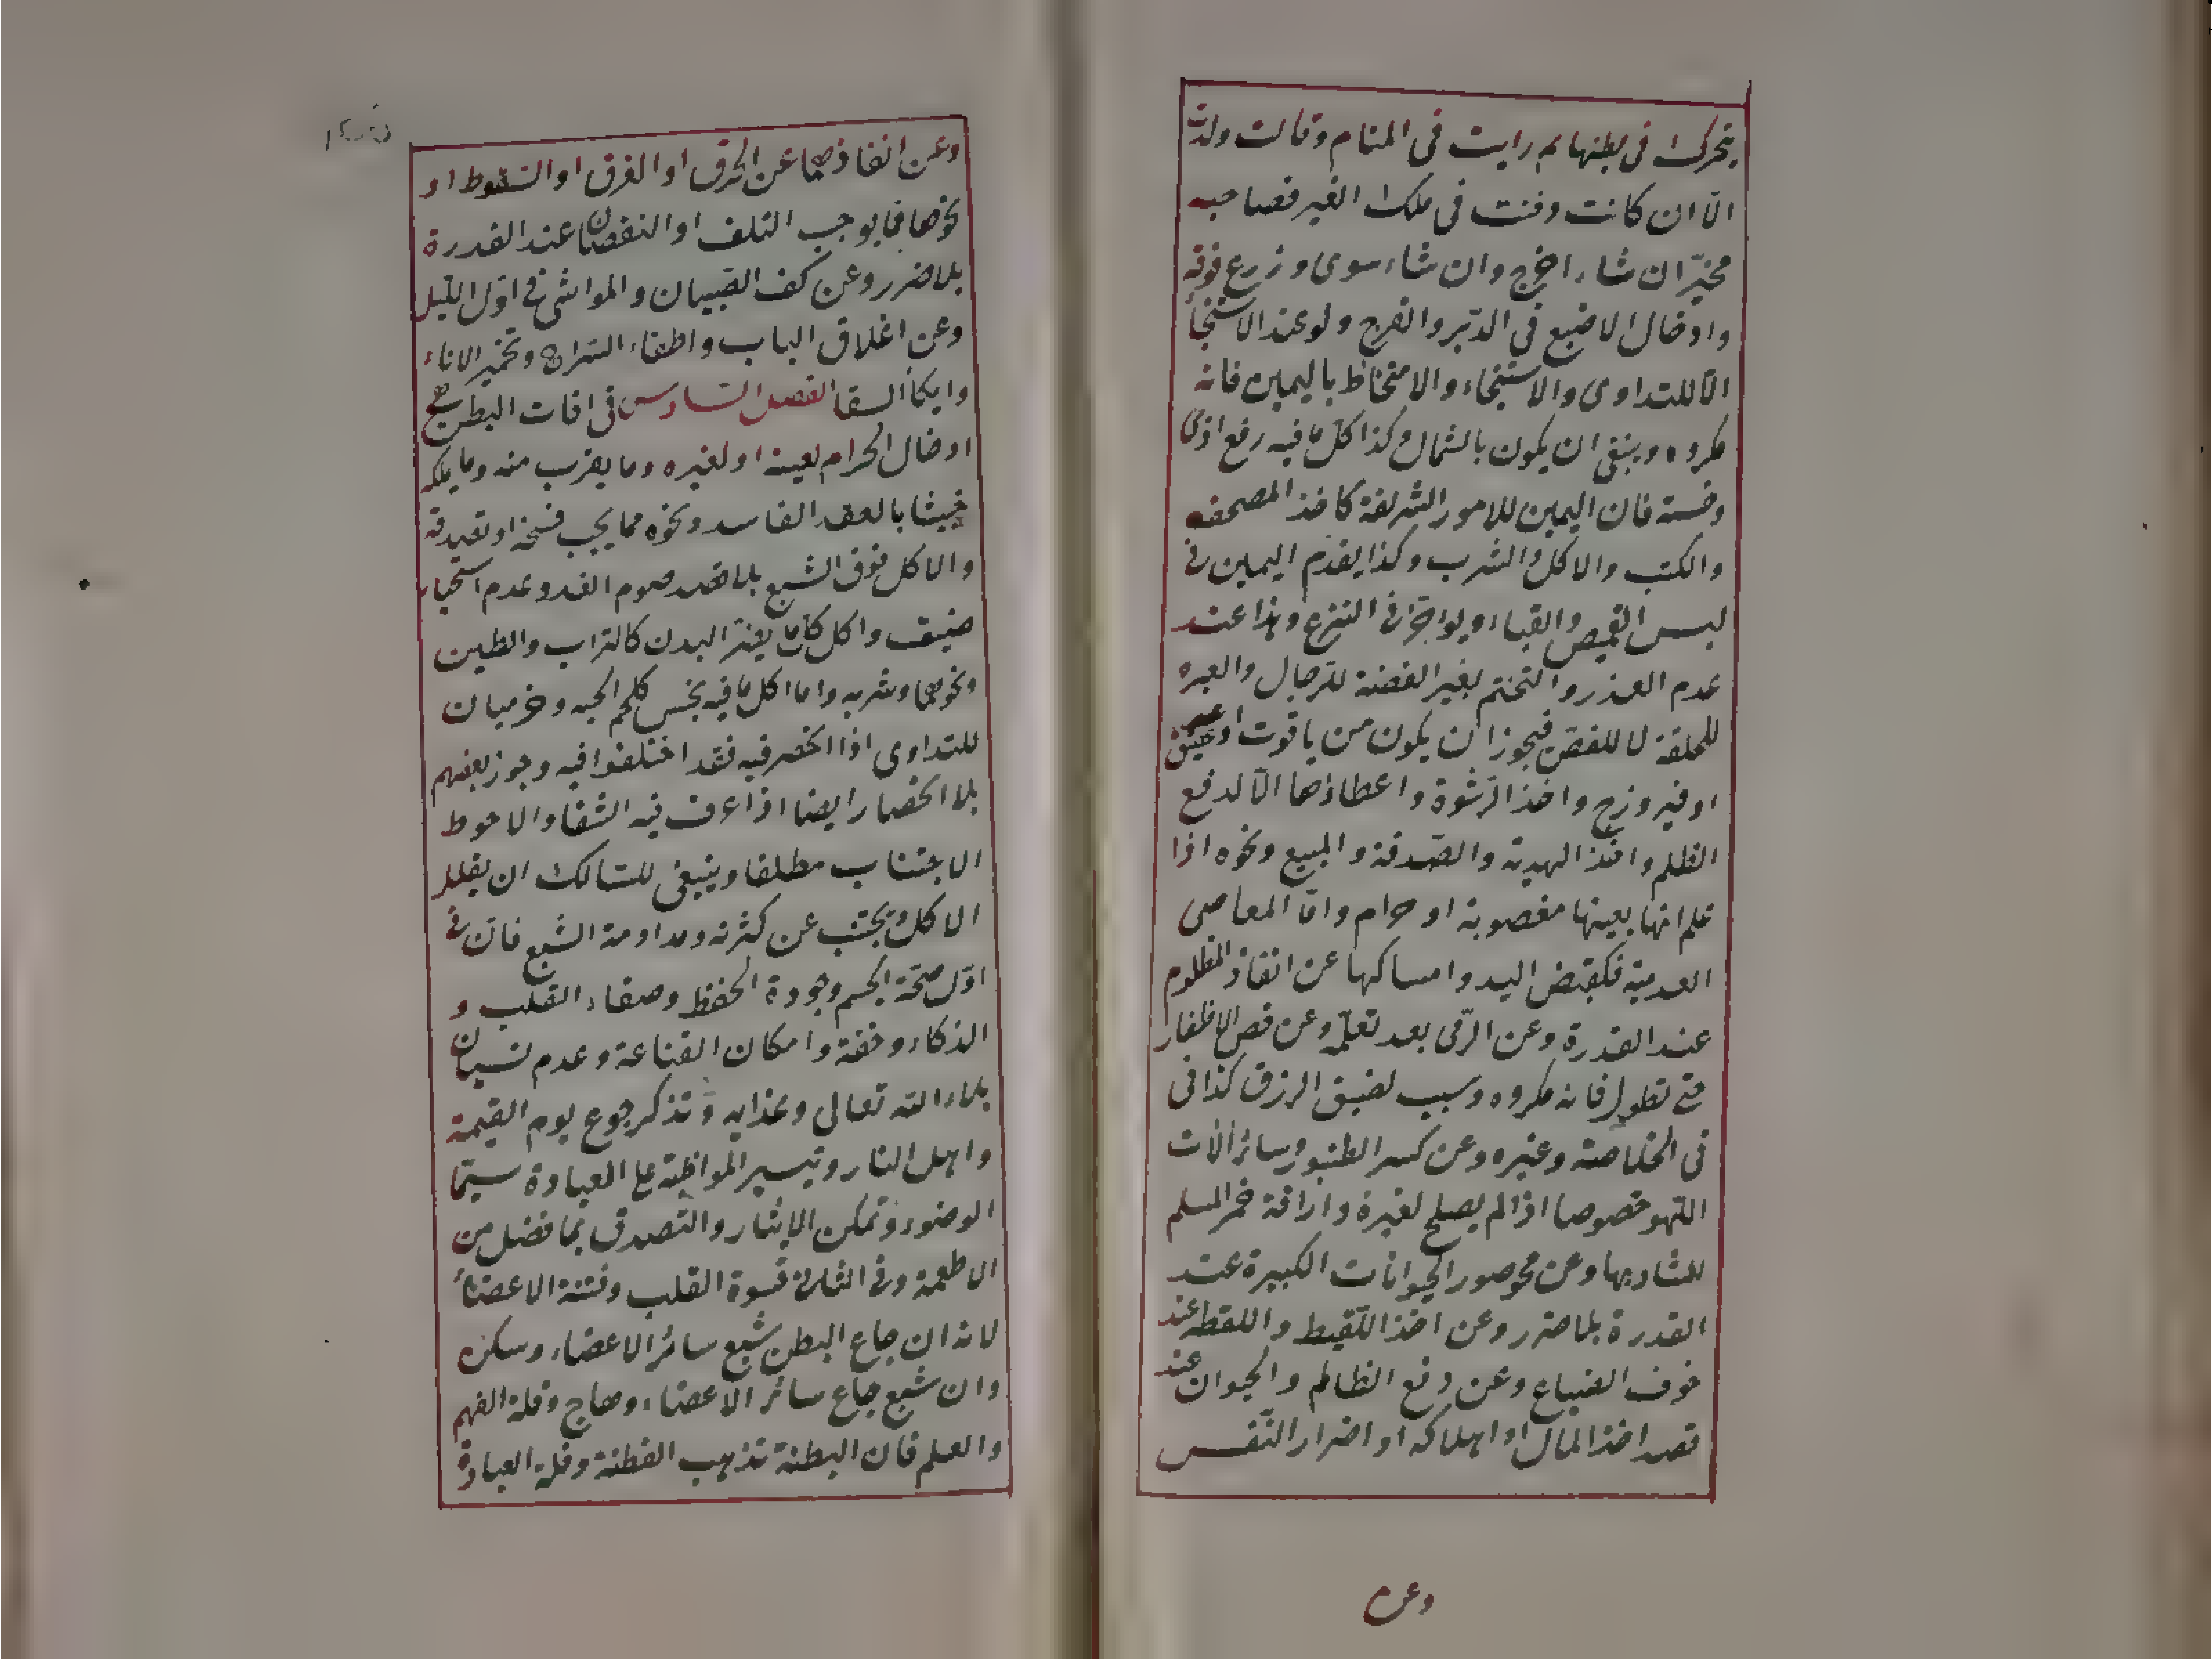 يتحرك في بطنها ثم رايت في المنام وقالت ولدت
الّا ان كانت دفنت في ملك الغير فصاحبه
مخيّر ان شاء اخرج وان شاء سوى وزرع فوقه
وادخال الاصبع في الدّبر والفرج ولو عند الاستنجاء
الّا للتداوى والاستنجاء والامتخاط باليمين فانه
مكروه وينبغي ان يكون بالشمال وكذا كل ما فيه رفع اذى
وخسة فان اليمين للامور الشريفة كاخذ المصحف
والكتب والاكل والشرب وكذا يقدّم اليمين في
لبس القميص والقباء ويؤاخر في النزع وهذا عند
عدم العذر والتختم بغير الفضة للرّجال والعبره
للحلقة لا للفصّ فيجوز ان يكون من ياقوت او عقيق
او فيروزج واخذ الرّشوة واعطاؤها الّا لدفع
الظلم واخذ الهدية والصّدقة والمبيع ونحوه اذا
علم انها بعينها مغصوبة او حرام وامّا المعاصى
العدمية فكقبض اليد وامساكها عن انقاذ المظلوم
عند القدرة وعن الرّمى بعد تعلمه وعن قص الاظفار
حتى تطول فانه مكروه وسبب لضيق الرزق كذا في
في الخلاصة وغيره وعن كسر الطنبور وسائر آلات
اللّهو خصوصا اذا لم يصلح لغيره واراقة خمر المسلم
للشاربها وعن محو صور الحيوانات الكبيرة عند
القدرة بلا ضرر وعن اخذ اللّقيط واللقطة عند
خوف الضياع وعن دفع الظالم والحيوان عند
قصد اخذ المال او اهلاكه او اضرار النّفس
وعن
وعن انقاذهما عن الحرق او الغرق او السّقوط او
نحوها مما يوجب التلف او النقصان عند القدرة
بلا ضرر وعن كف الصّبيان والمواشى في اوّل اللّيل
وعن اغلاق الباب واطفاء السّراج وتخمير الاناء
وايكاء السقا الفصل السّادس في افات البطن هي
ادخال الحرام لعينه او لغيره وما يقرب منه وما يملكه
خبيثا بالعقد الفاسد ونحوه مما يجب فسخه او تصدقه
والاكل فوق الشبع بلا قصد صوم الغد وعدم استحياء
ضيف واكل كل ما يضرّ البدن كالتراب والطين
ونحوهما وشربه واما اكل ما فيه نجس كلحم الحية وخرميان
للتداوى اذا انحصر فيه فقد اختلفوا فيه وجوز بعضهم
بلا انحصار ايضا اذا عرف فيه الشفا والاحوط
الاجتناب مطلقا وينبغى للسّالك ان يقلل
الاكل ويجتنب عن كثرته ومداومة الشبع فان في
اوّل صحّة الجسم وجودة الحفظ وصفاء القلب و
الذكاء وخفة وامكان القناعة وعدم نسيان
بلاء الله تعالى وعذابه وتذكر جوع يوم القيمة
واهل النار وتيسير المواظبة على العبادة سيّما
الوضوء وتمكن الايثار والتصدق بما فضل من
الاطعمة وفي الثانى قسوة القلب وفتنة الاعضاء
لانه ان جاع البطن شبع سائر الاعضاء وسكن
وان شبع جاع سائر الاعضاء وهاج وقلة الفهم
والعلم فان البطنة تذهب الفطنة وقلة العبادة